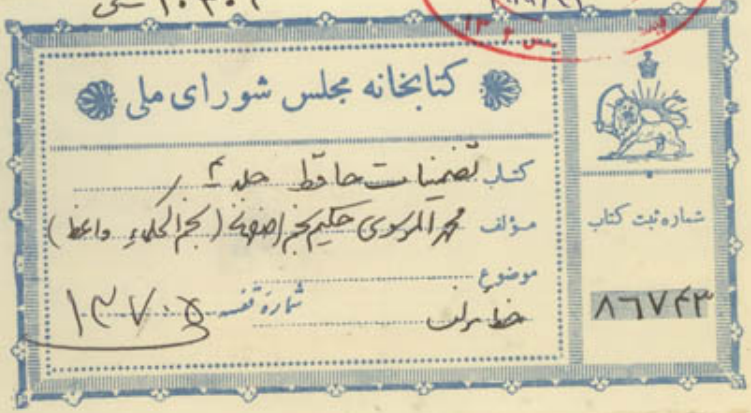 کتابخانه مجلس شورای ملی
کتاب تضمینات حافظ جلد ۴
مؤلف محمد الموسوی حکیم نجم (نجم الحکماء واعظ)
موضوع
خط مؤلف
شماره قفسه ۱۳۷۰۵
شماره ثبت کتاب
۸۶۷۴۳